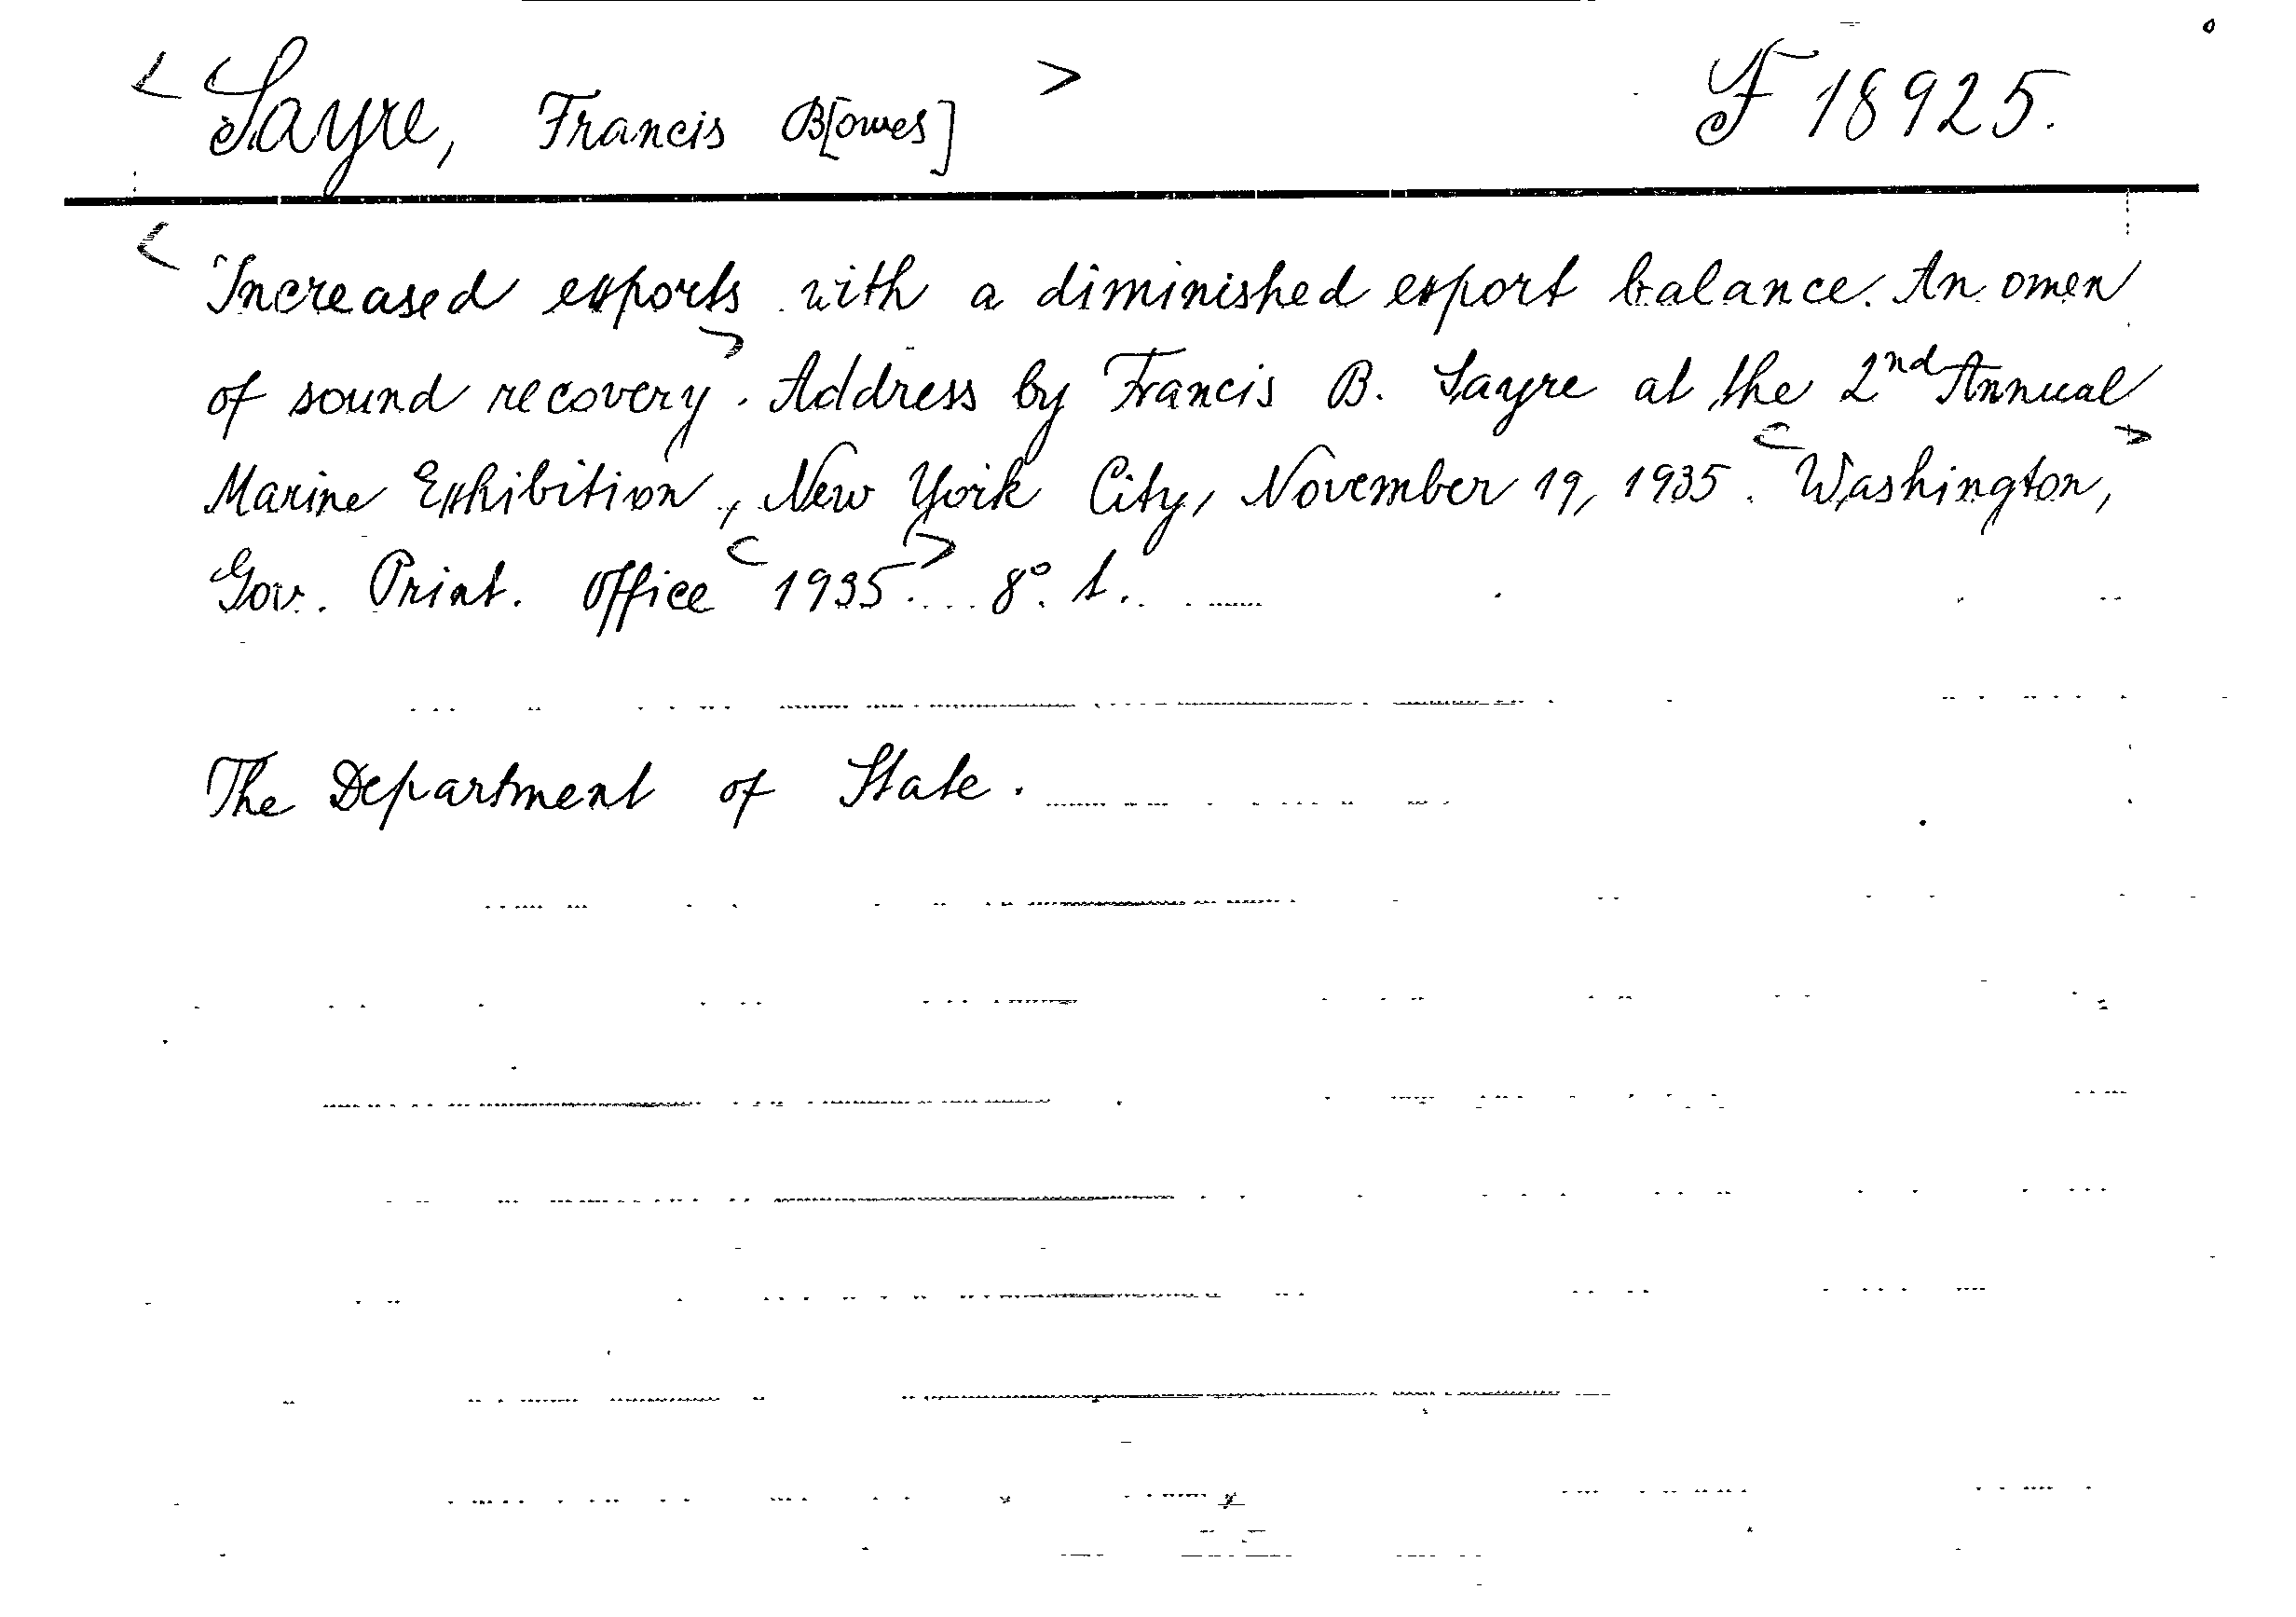 < Sayre, Francis B[owes] > F 18925.
< Increased exports with a diminished export balance. An omen
of sound recovery >. Address by Francis B. Sayre at the 2nd Annual
Marine Exhibition, New York City, November 19, 1935. < Washington, >
Gov. Print. Office < 1935. > 8°.
The Department of State.